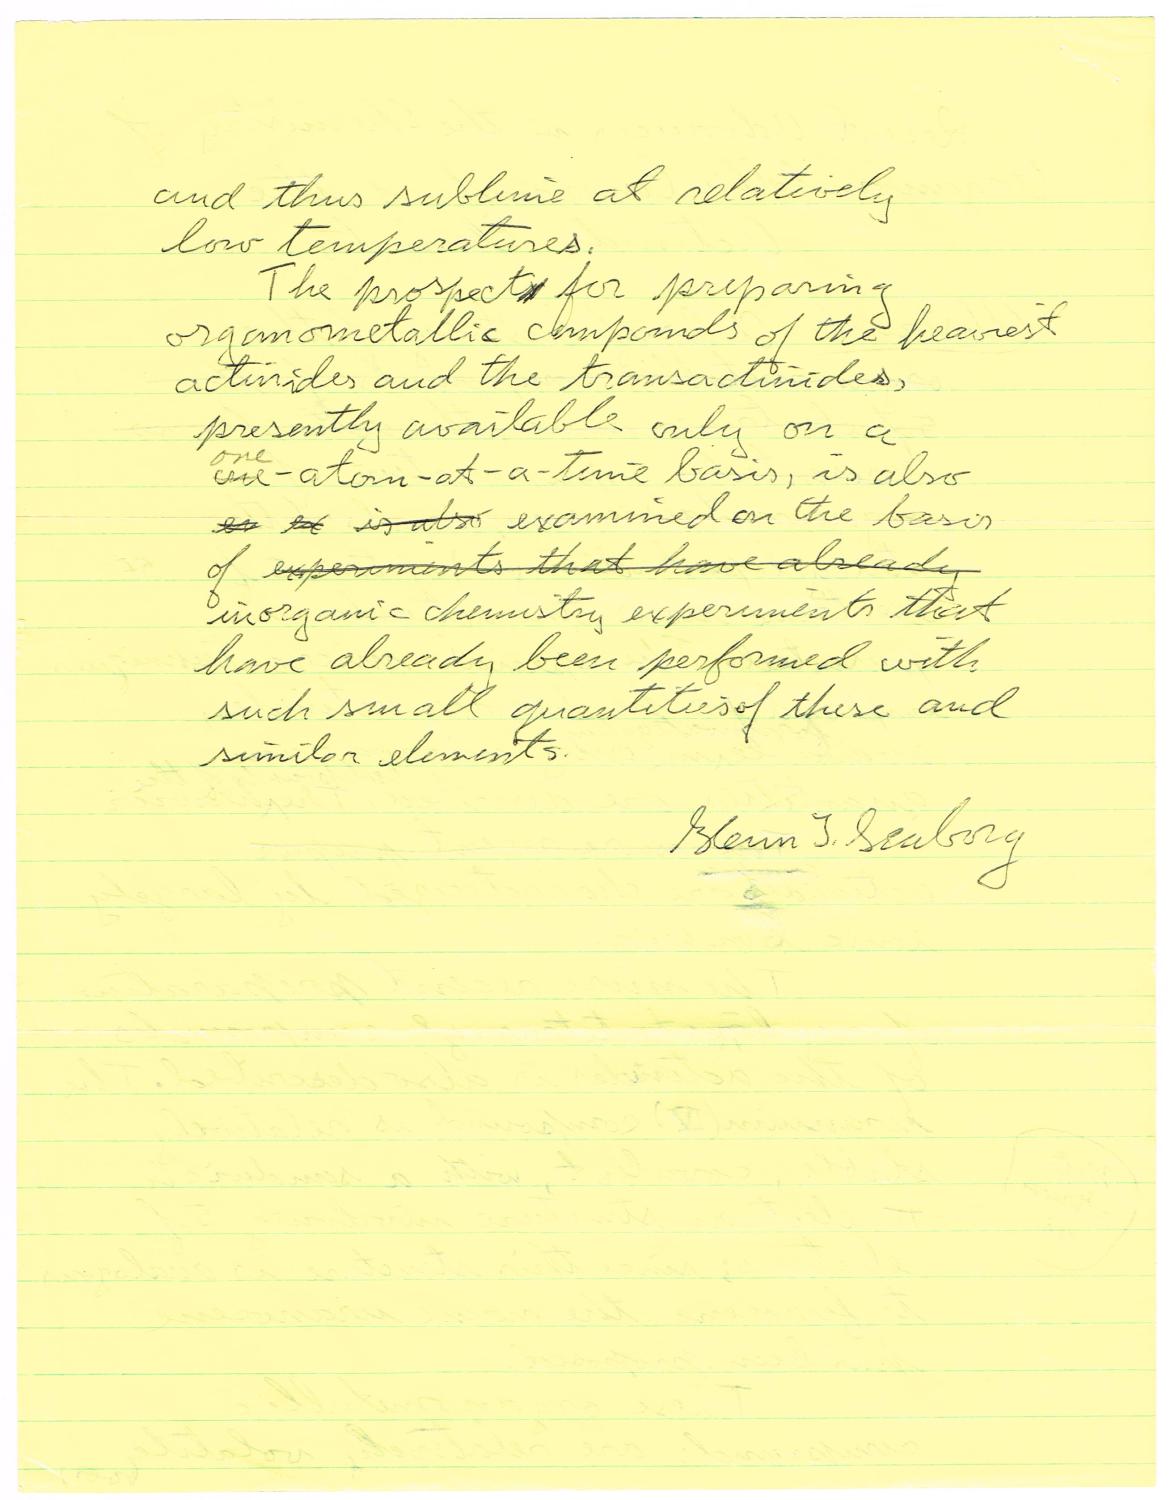 and thus sublime at relatively
low temperatures.
The prospect for preparing
organometallic compounds of the heaviest
actinides and the transactinides,
presently available only on a
one
one-atom-at-a-time basis, is also
es ex is also examined on the basis
of experiments that have already
inorganic chemistry experiments that
have already been performed with
such small quantities of these and
similar elements.
Glenn T. Seaborg